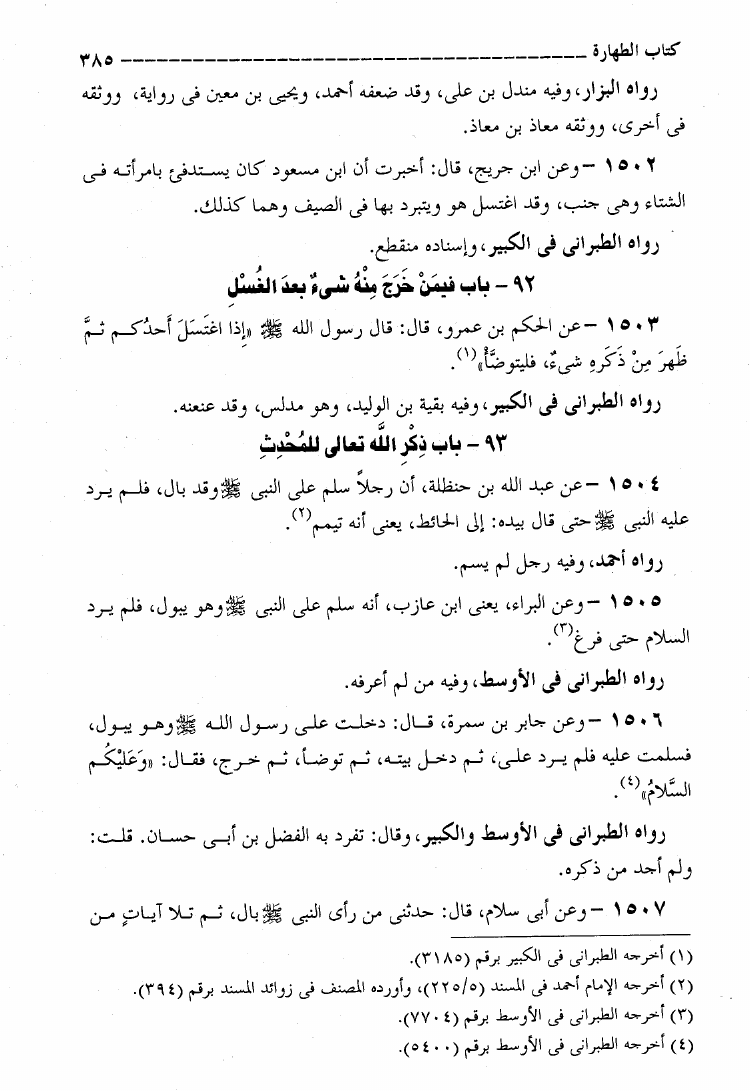 كتاب الطهارة ــــــــــــــــــــــــــــــــــــــــــــــــــــــ ٣٨٥
رواه البزار، وفيه مندل بن على، وقد ضعفه أحمد، ويحيى بن معين فى رواية، ووثقه
فى أخرى، ووثقه معاذ بن معاذ.
١٥٠٢ – وعن ابن جريج، قال: أخبرت أن ابن مسعود كان يستدفئ بامرأته فى
الشتاء وهى جنب، وقد اغتسل هو ويتبرد بها فى الصيف وهما كذلك.
رواه الطبرانى فى الكبير، وإسناده منقطع.
٩٢ – باب فيمَنْ خَرَجَ مِنْهُ شىءٌ بعدَ الغُسْلِ
١٥٠٣ – عن الحكم بن عمرو، قال: قال رسول الله ﷺ «إِذا اغتَسَلَ أَحدُكم ثمَّ
ظَهرَ مِنْ ذَكَرِهِ شىءٌ، فليتوضَّأْ»(١).
رواه الطبرانى فى الكبير، وفيه بقية بن الوليد، وهو مدلس، وقد عنعنه.
٩٣ – باب ذِكْرِ اللَّه تعالى للمُحْدِثِ
١٥٠٤ – عن عبد الله بن حنظلة، أن رجلاً سلم على النبى ﷺ وقد بال، فلم يرد
عليه النبى ﷺ حتى قال بيده: إلى الحائط، يعنى أنه تيمم(٢).
رواه أحمد، وفيه رجل لم يسم.
١٥٠٥ – وعن البراء، يعنى ابن عازب، أنه سلم على النبى ﷺ وهو يبول، فلم يرد
السلام حتى فرغ(٣).
رواه الطبرانى فى الأوسط، وفيه من لم أعرفه.
١٥٠٦ – وعن جابر بن سمرة، قال: دخلت على رسول الله ﷺ وهو يبول،
فسلمت عليه فلم يرد على، ثم دخل بيته، ثم توضأ، ثم خرج، فقال: «وَعَلَيْكُم
السَّلامُ»(٤).
رواه الطبرانى فى الأوسط والكبير، وقال: تفرد به الفضل بن أبى حسان. قلت:
ولم أجد من ذكره.
١٥٠٧ – وعن أبى سلام، قال: حدثنى من رأى النبى ﷺ بال، ثم تلا آياتٍ من
(١) أخرجه الطبرانى فى الكبير برقم (٣١٨٥).
(٢) أخرجه الإمام أحمد فى المسند (٢٢٥/٥)، وأورده المصنف فى زوائد المسند برقم (٣٩٤).
(٣) أخرجه الطبرانى فى الأوسط برقم (٧٧٠٤).
(٤) أخرجه الطبرانى فى الأوسط برقم (٥٤٠٠).